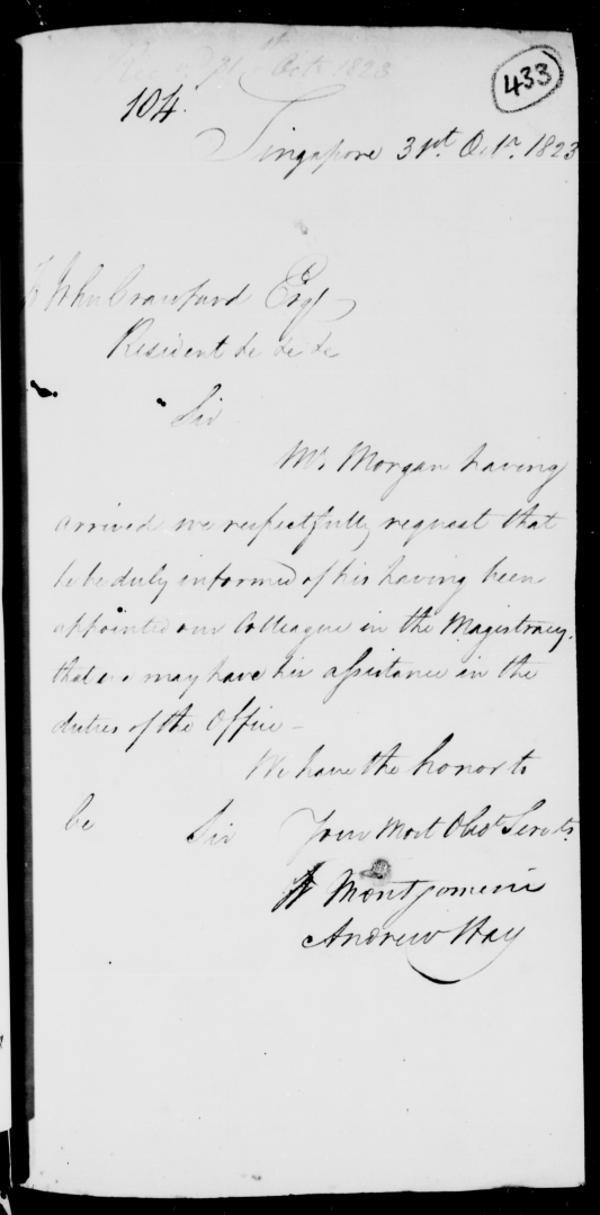 Rec.d 31st Octr 1823
433
104.
Singapore 31st. Octr. 1823
To John Crawfurd Esqr
Resident &c &c &c
Sir
Mr. Morgan having
arrived we respectfully request that
he be duly informed of his having been
appointed our Colleague in the Magistracy,
that we may have his assistance in the
duties of the Office -
We have the honor to
be Sir Your Most Obedt Servts.
Montgomerie
Andrew Hay